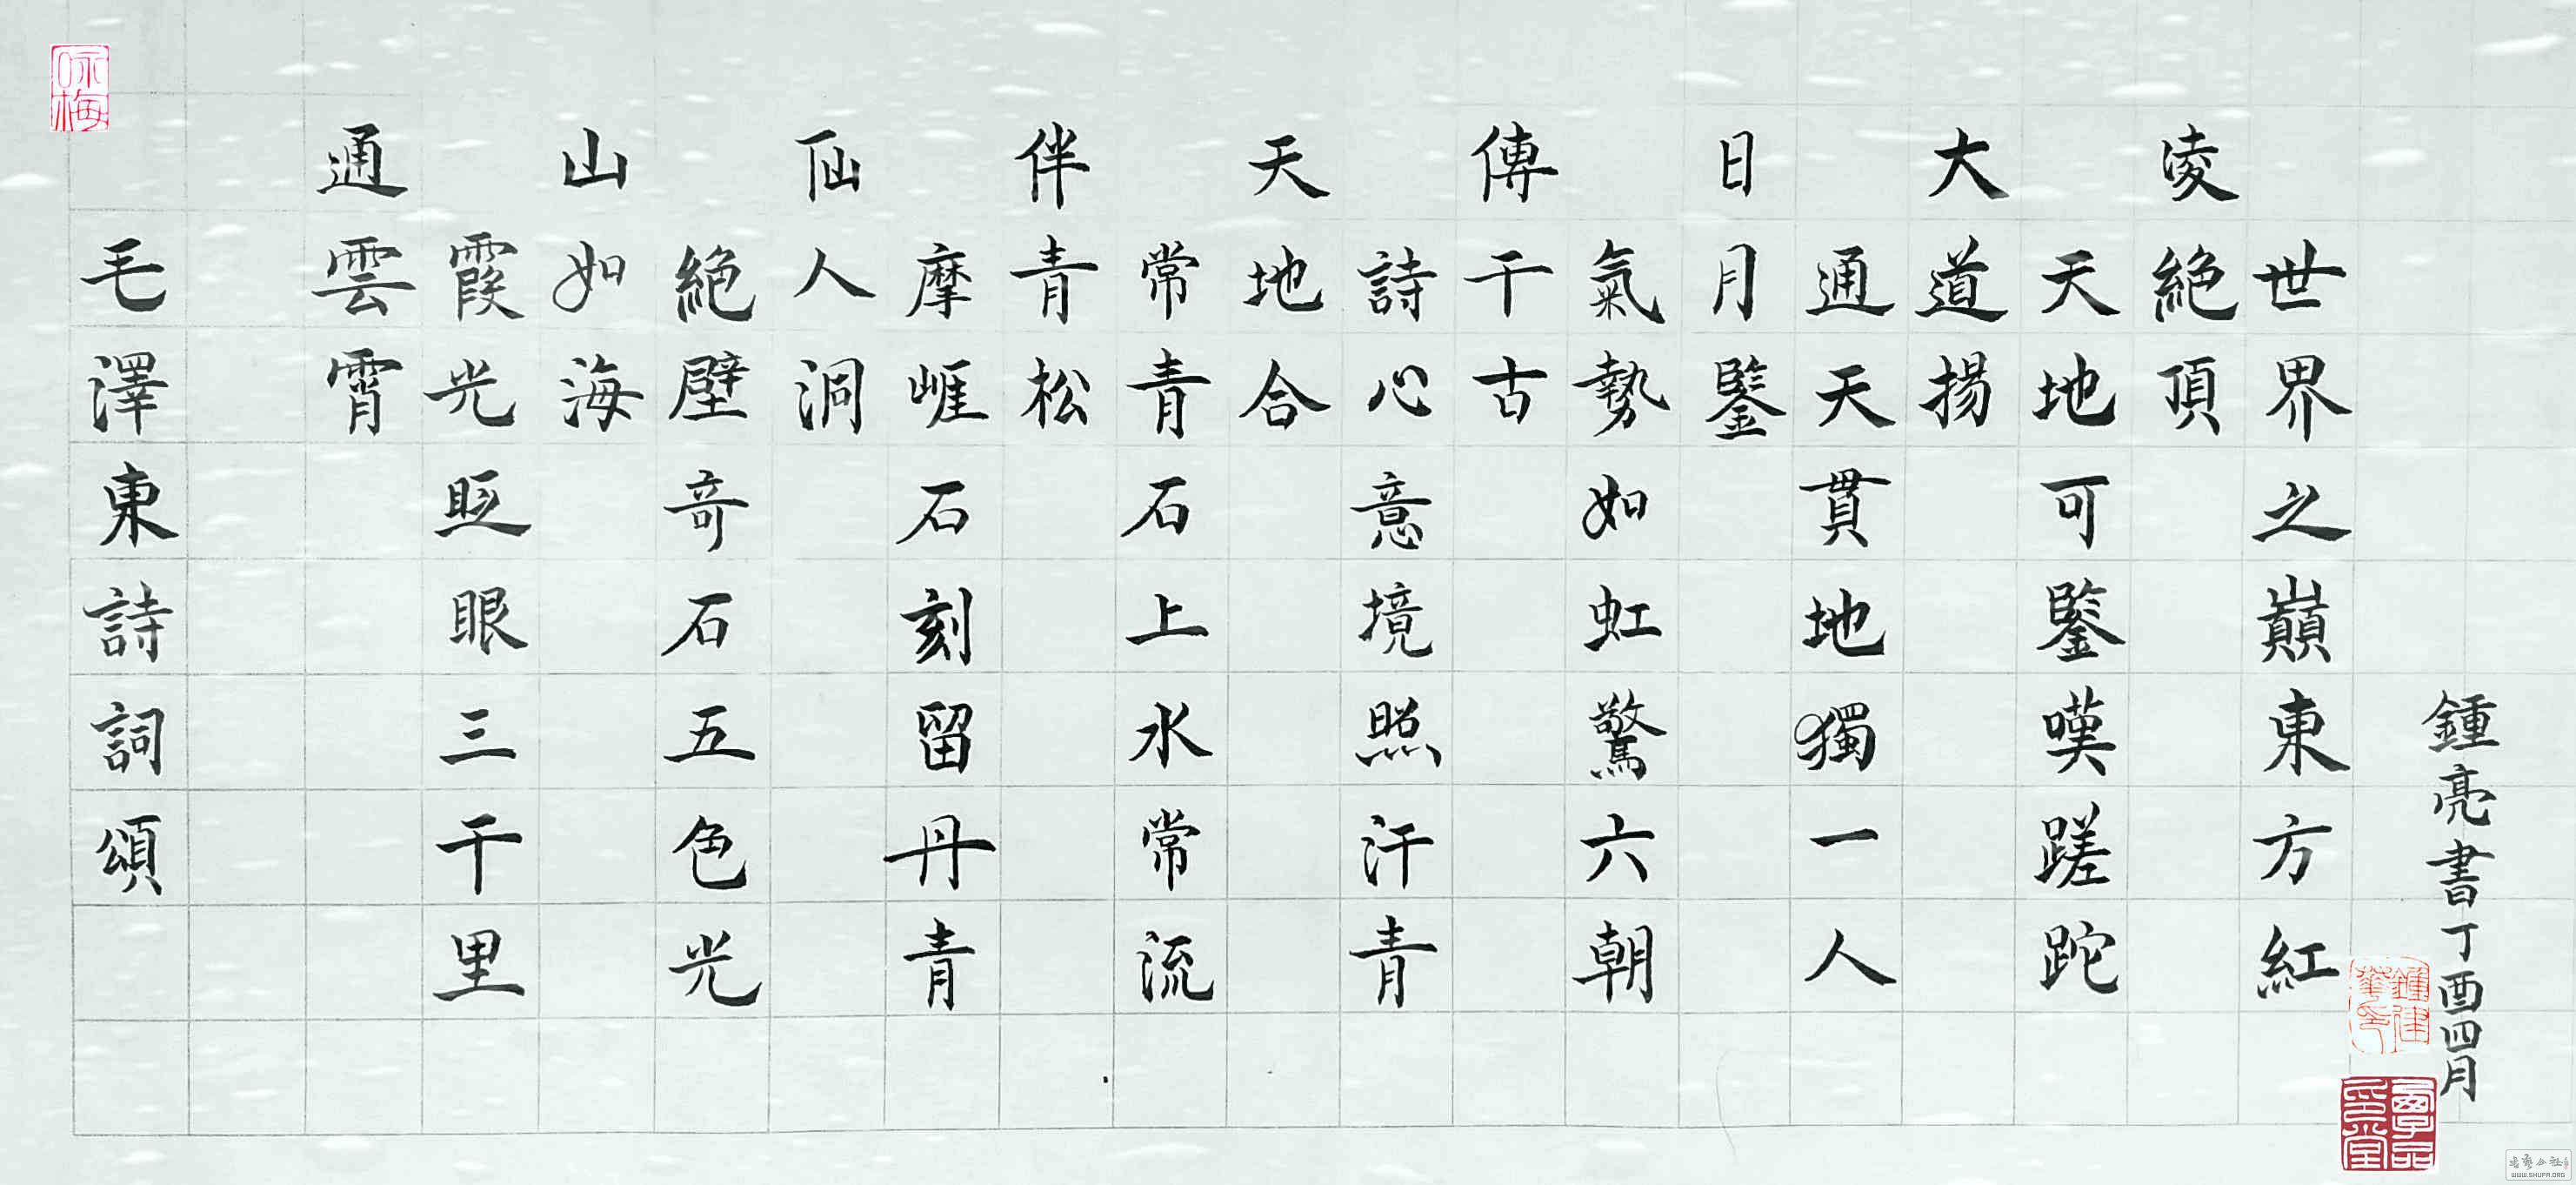 咏梅
毛澤東詩詞頌
通雲霄
霞光眨眼三千里
山如海
絶壁奇石五色光
仙人洞
摩崕石刻留丹青
伴青松
常青石上水常流
天地合
詩心意境照汗青
傳千古
氣勢如虹驚六朝
日月鑒
通天貫地獨一人
大道揚
天地可鑒嘆蹉跎
凌絶頂
世界之巔東方紅
鍾亮書丁酉四月
WWW.SHUFA.ORG